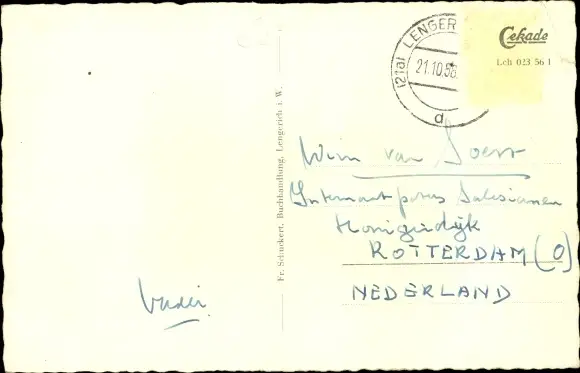 Cekade
Lch 023 56 1
(21a) LENGER
21.10.58.
d
Fr. Schmekert, Buchhandlung, Lengerich i. W.
Wim van Soest
Internaat paters Salesianen
Honingerdijk
ROTTERDAM (O)
NEDERLAND
Vader